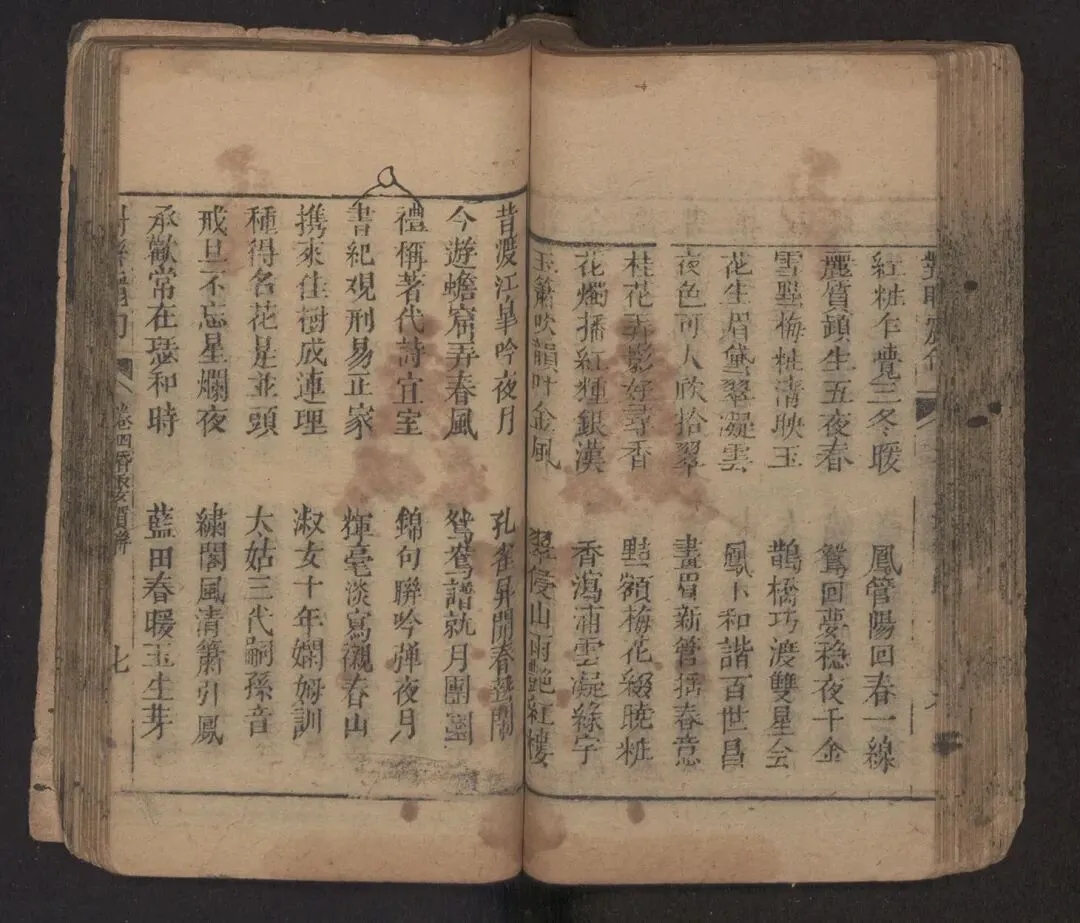 紅粧乍覺三冬暖 鳳管陽回春一線
麗質頴生五夜春 鴛回夢穏夜千金
雪墅梅粧清映玉 鵲橋巧渡雙星会
花生眉黛翠凝雲 鳳卜和諧百世昌
夜色可人欣拾翠 畫眉新管描春意
桂花弄影好尋香 點額梅花綴曉粧
花燭播紅輝銀漢 香瀉浦雲凝綠宇
玉簫吹韻叶金風 翠侵山雨艷紅樓
昔渡江皐吟夜月 孔雀屏開春
今遊蟾窟弄春風 鴛鴦譜就月團圓
禮稱著代詩宜室 錦句聯吟弹夜月
書紀观刑易正家 輝毫淡寫襯春山
携來佳樹成連理 淑女十年嫻姆訓
種得名花是並頭 太姑三代嗣孫音
戒旦不忘星爛夜 繡閣風清簫引鳳
承歡常在瑟和時 藍田春暖玉生芽
卷四 七